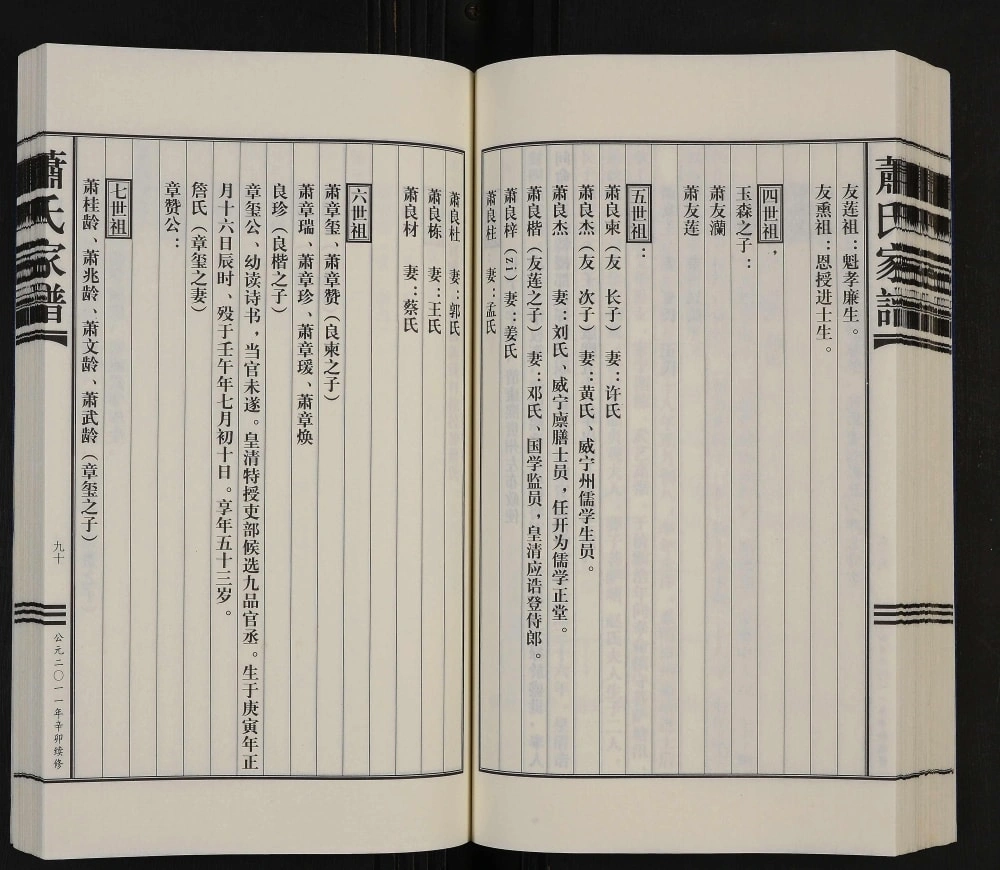 蕭氏家譜
友莲祖：魁孝廉生。
友熏祖：恩授进士生。
四世祖，
玉森之子：
萧友瀾
萧友莲
五世祖：
萧良柬（友　长子）　妻：许氏
萧良杰（友　次子）　妻：黄氏、威宁州儒学生员。
萧良杰　　妻：刘氏、威宁廪膳士员，任开为儒学正堂。
萧良楷（友莲之子）　妻：邓氏、国学监员，皇清应诰登侍郎。
萧良梓（zi）妻：姜氏
萧良柱　　妻：孟氏
萧良杜　　妻：郭氏
萧良栋　　妻：王氏
萧良材　　妻：蔡氏
六世祖
萧章玺、萧章赞（良柬之子）
萧章瑞、萧章珍、萧章瑗、萧章焕
良珍（良楷之子）
章玺公、幼读诗书，当官未遂。皇清特授吏部候选九品官丞。生于庚寅年正
月十六日辰时、殁于壬午年七月初十日。享年五十三岁。
詹氏（章玺之妻）
章赞公：
七世祖
萧桂龄、萧兆龄、萧文龄、萧武龄（章玺之子）
蕭氏家譜
九十
公元二〇一一年辛卯续修